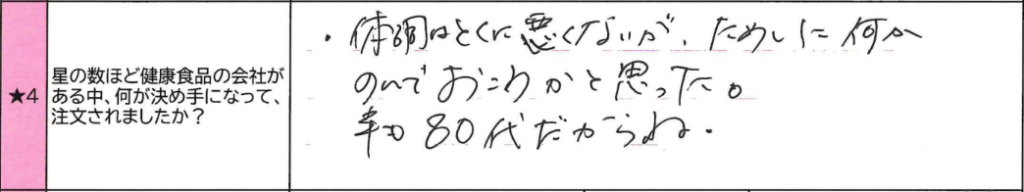 ★4
星の数ほど健康食品の会社が
ある中、何が決め手になって、
注文されましたか？
・体調はとくに悪くないが、ためしに何か
のんでおこうかと思った。
年も80代だからね.